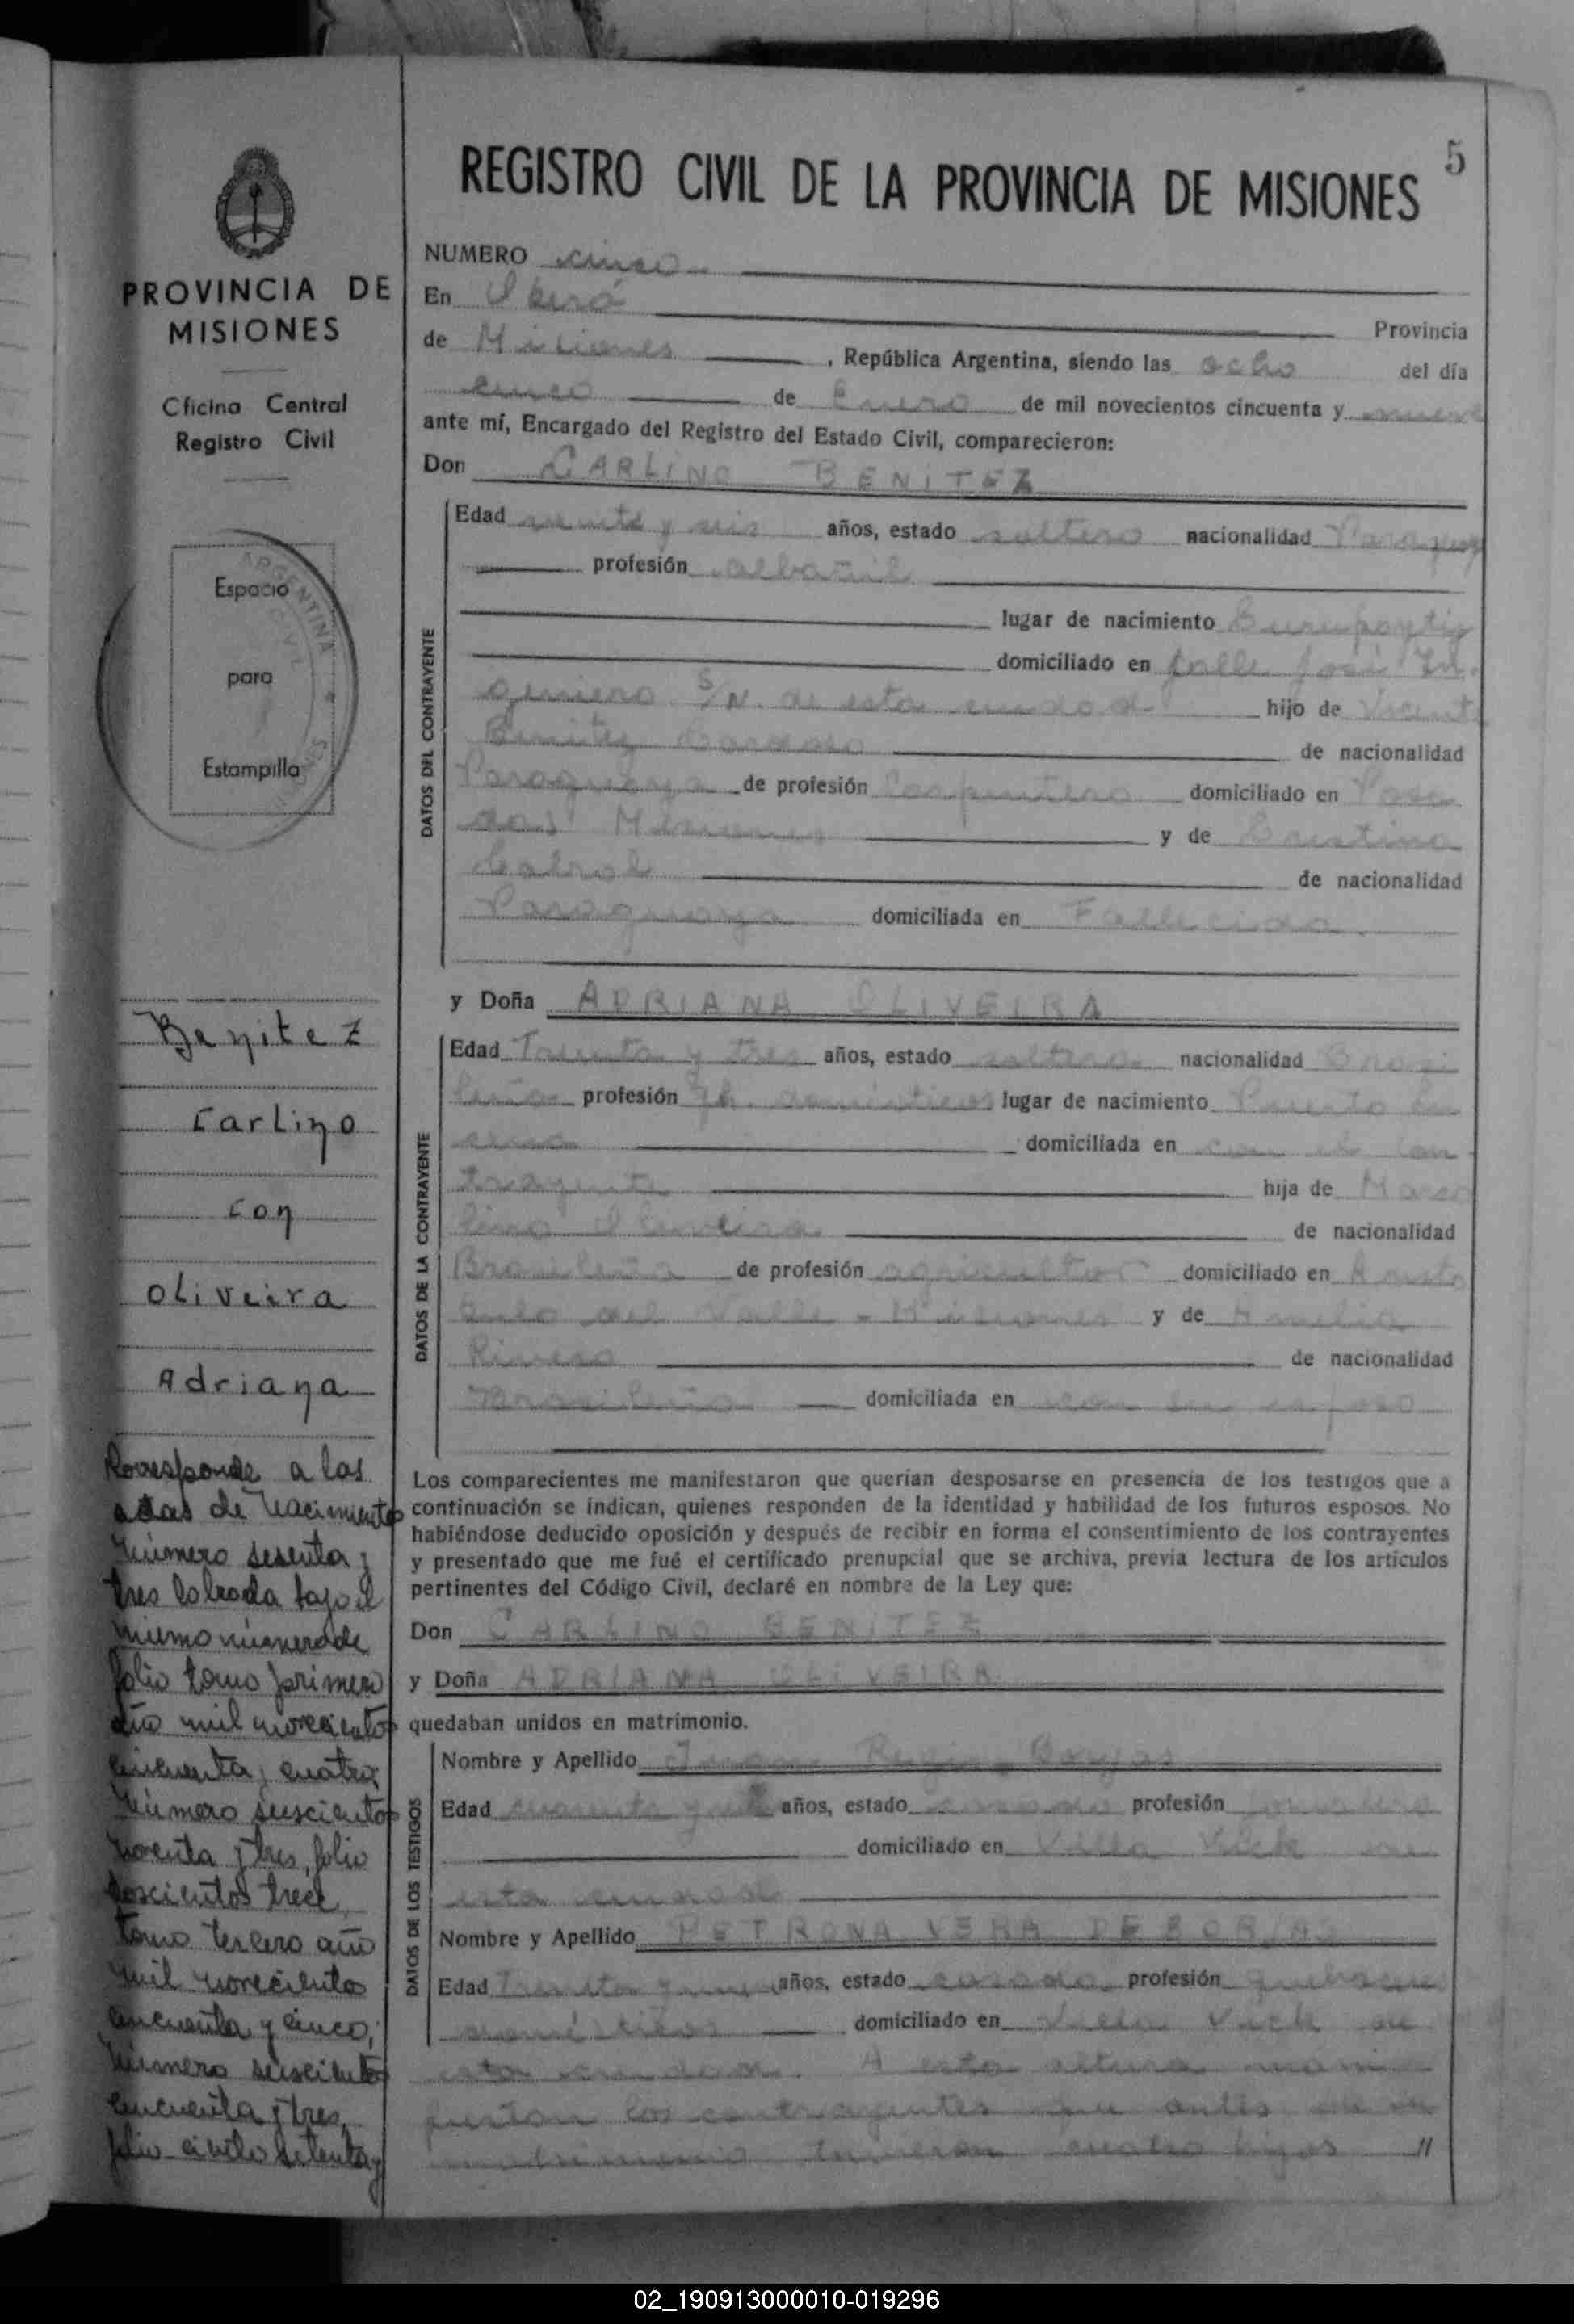 5
REGISTRO CIVIL DE LA PROVINCIA DE MISIONES
PROVINCIA DE
MISIONES
Oficina Central
Registro Civil
Espacio
para
Estampilla
ARGENTINA
Benitez
Carlino
con
Oliveira
Adriana
Corresponde a las
actas de Nacimientos
Número sesenta y
tres labrada bajo el
mismo número de
folio tomo primero
año mil novecientos
cincuenta y cuatro;
Número seiscientos
noventa y tres, folio
doscientos trece,
tomo tercero año
mil novecientos
cincuenta y cinco;
Número seiscientos
cincuenta y tres,
folio ciento setenta y
NUMERO cinco
En Oberá
Provincia
de Misiones, República Argentina, siendo las ocho del día
cinco de Enero de mil novecientos cincuenta y nueve
ante mí, Encargado del Registro del Estado Civil, comparecieron:
Don CARLINO BENITEZ
DATOS DEL CONTRAYENTE
Edad veinte y seis años, estado soltero nacionalidad Paraguay
profesión albañil
lugar de nacimiento
domiciliado en Calle José In-
geniero S/N. de esta ciudad hijo de Vicente
Benitez Cardoso de nacionalidad
Paraguaya de profesión Carpintero domiciliado en Posa
das Misiones y de Cristina
Cabral de nacionalidad
Paraguaya domiciliada en Fallecida.
y Doña ADRIANA OLIVEIRA
DATOS DE LA CONTRAYENTE
Edad Treinta y tres años, estado soltera nacionalidad Brasi
leña profesión Qh. domésticos lugar de nacimiento Puerto
domiciliada en con el con
trayente hija de Marce
lino Oliveira de nacionalidad
Brasileña de profesión agricultor domiciliado en Aristó
bulo del Valle - Misiones y de Amelia
de nacionalidad
Brasileña domiciliada en con su esposo
Los comparecientes me manifestaron que querían desposarse en presencia de los testigos que a
continuación se indican, quienes responden de la identidad y habilidad de los futuros esposos. No
habiéndose deducido oposición y después de recibir en forma el consentimiento de los contrayentes
y presentado que me fué el certificado prenupcial que se archiva, previa lectura de los artículos
pertinentes del Código Civil, declaré en nombre de la Ley que:
Don CARLINO BENITEZ
y Doña ADRIANA OLIVEIRA
quedaban unidos en matrimonio.
DATOS DE LOS TESTIGOS
Nombre y Apellido Borjas
Edad cuarenta y años, estado casado profesión jornalero
domiciliado en Villa Vick de
esta ciudad
Nombre y Apellido PETRONA VERA DE BORJAS
Edad Treinta y años, estado casada profesión quehacer
domésticos domiciliado en Villa Vick de
esta ciudad. A esta altura mani
fiestan los contrayentes que antes de su
matrimonio tuvieron cuatro hijos //
02_190913000010-019296